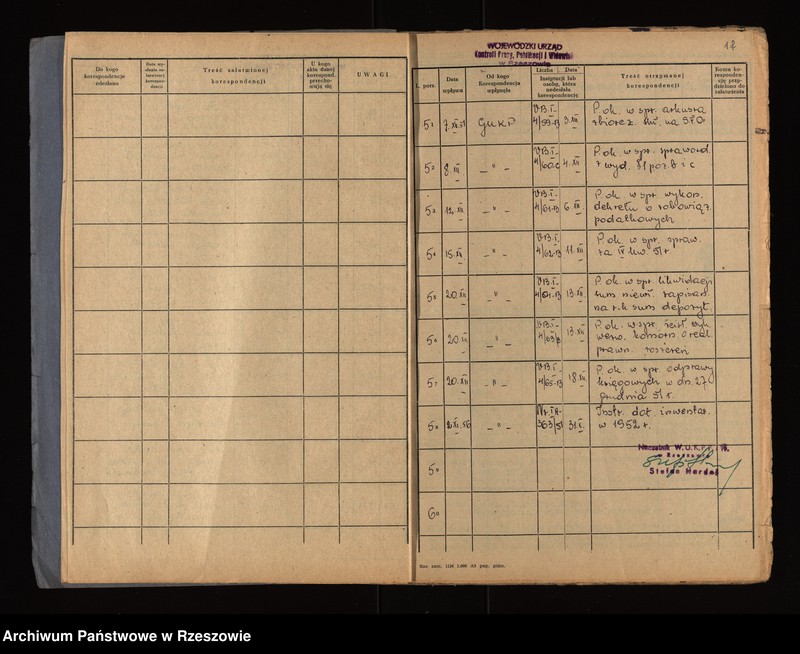 Do kogo korespondencję zesłano
Treść załatwionej korespondencji
U kogo akta danej korespond. przechowują się
UWAGI
WOJEWÓDZKI URZĄD
Kontroli Prasy, Publikacji i Widowisk
w Rzeszowie
12
L. porz.
Data wpływu
Od kogo Korespondencja wpłynęła
Liczba Data
Instytucji lub osoby, która nadesłała korespondencję
Treść otrzymanej korespondencji
Komu korespondencję przydzielono do załatwienia
51 7.XII.51 GUKP VB.I- 4/59-B 3.XII P. ok. w spr. arkusza
zbiorcz. na SFO
52 8.XII — " — VB.I- 4/60c 4.XII P. ok. w spr. sprawozd.
z wyd. i c
53 12.XII — " — VB.I- 4/61-B 6.XII P. ok. w spr. wykon.
dekretu o zobowiąz.
podatkowych
54 15.XII — " — VB.I. 4/62-B 11.XII P. ok. w spr. spraw.
za IV kw. 51 r.
55 20.XII — " — VB.I- 13.XII P. ok. w spr. likwidacji
sum zapisan.
na r-k sum depozyt.
56 20.XII — " — 13.XII P. ok. w spr.
prawn.
57 20.XII — " — VB.I- 4/65-B 18.XII P. ok. w spr. odprawy
księgowych w dn. 27
grudnia 51 r.
58 — " — 363/51 31.I. Instr. dot. inwentar.
w 1952 r.
59
60
Naczelnik W.U.K.P.
w Rzeszowie
Stefan
Rzz. zam. 1126 2.000 A3 pap. piśm.
Archiwum Państwowe w Rzeszowie